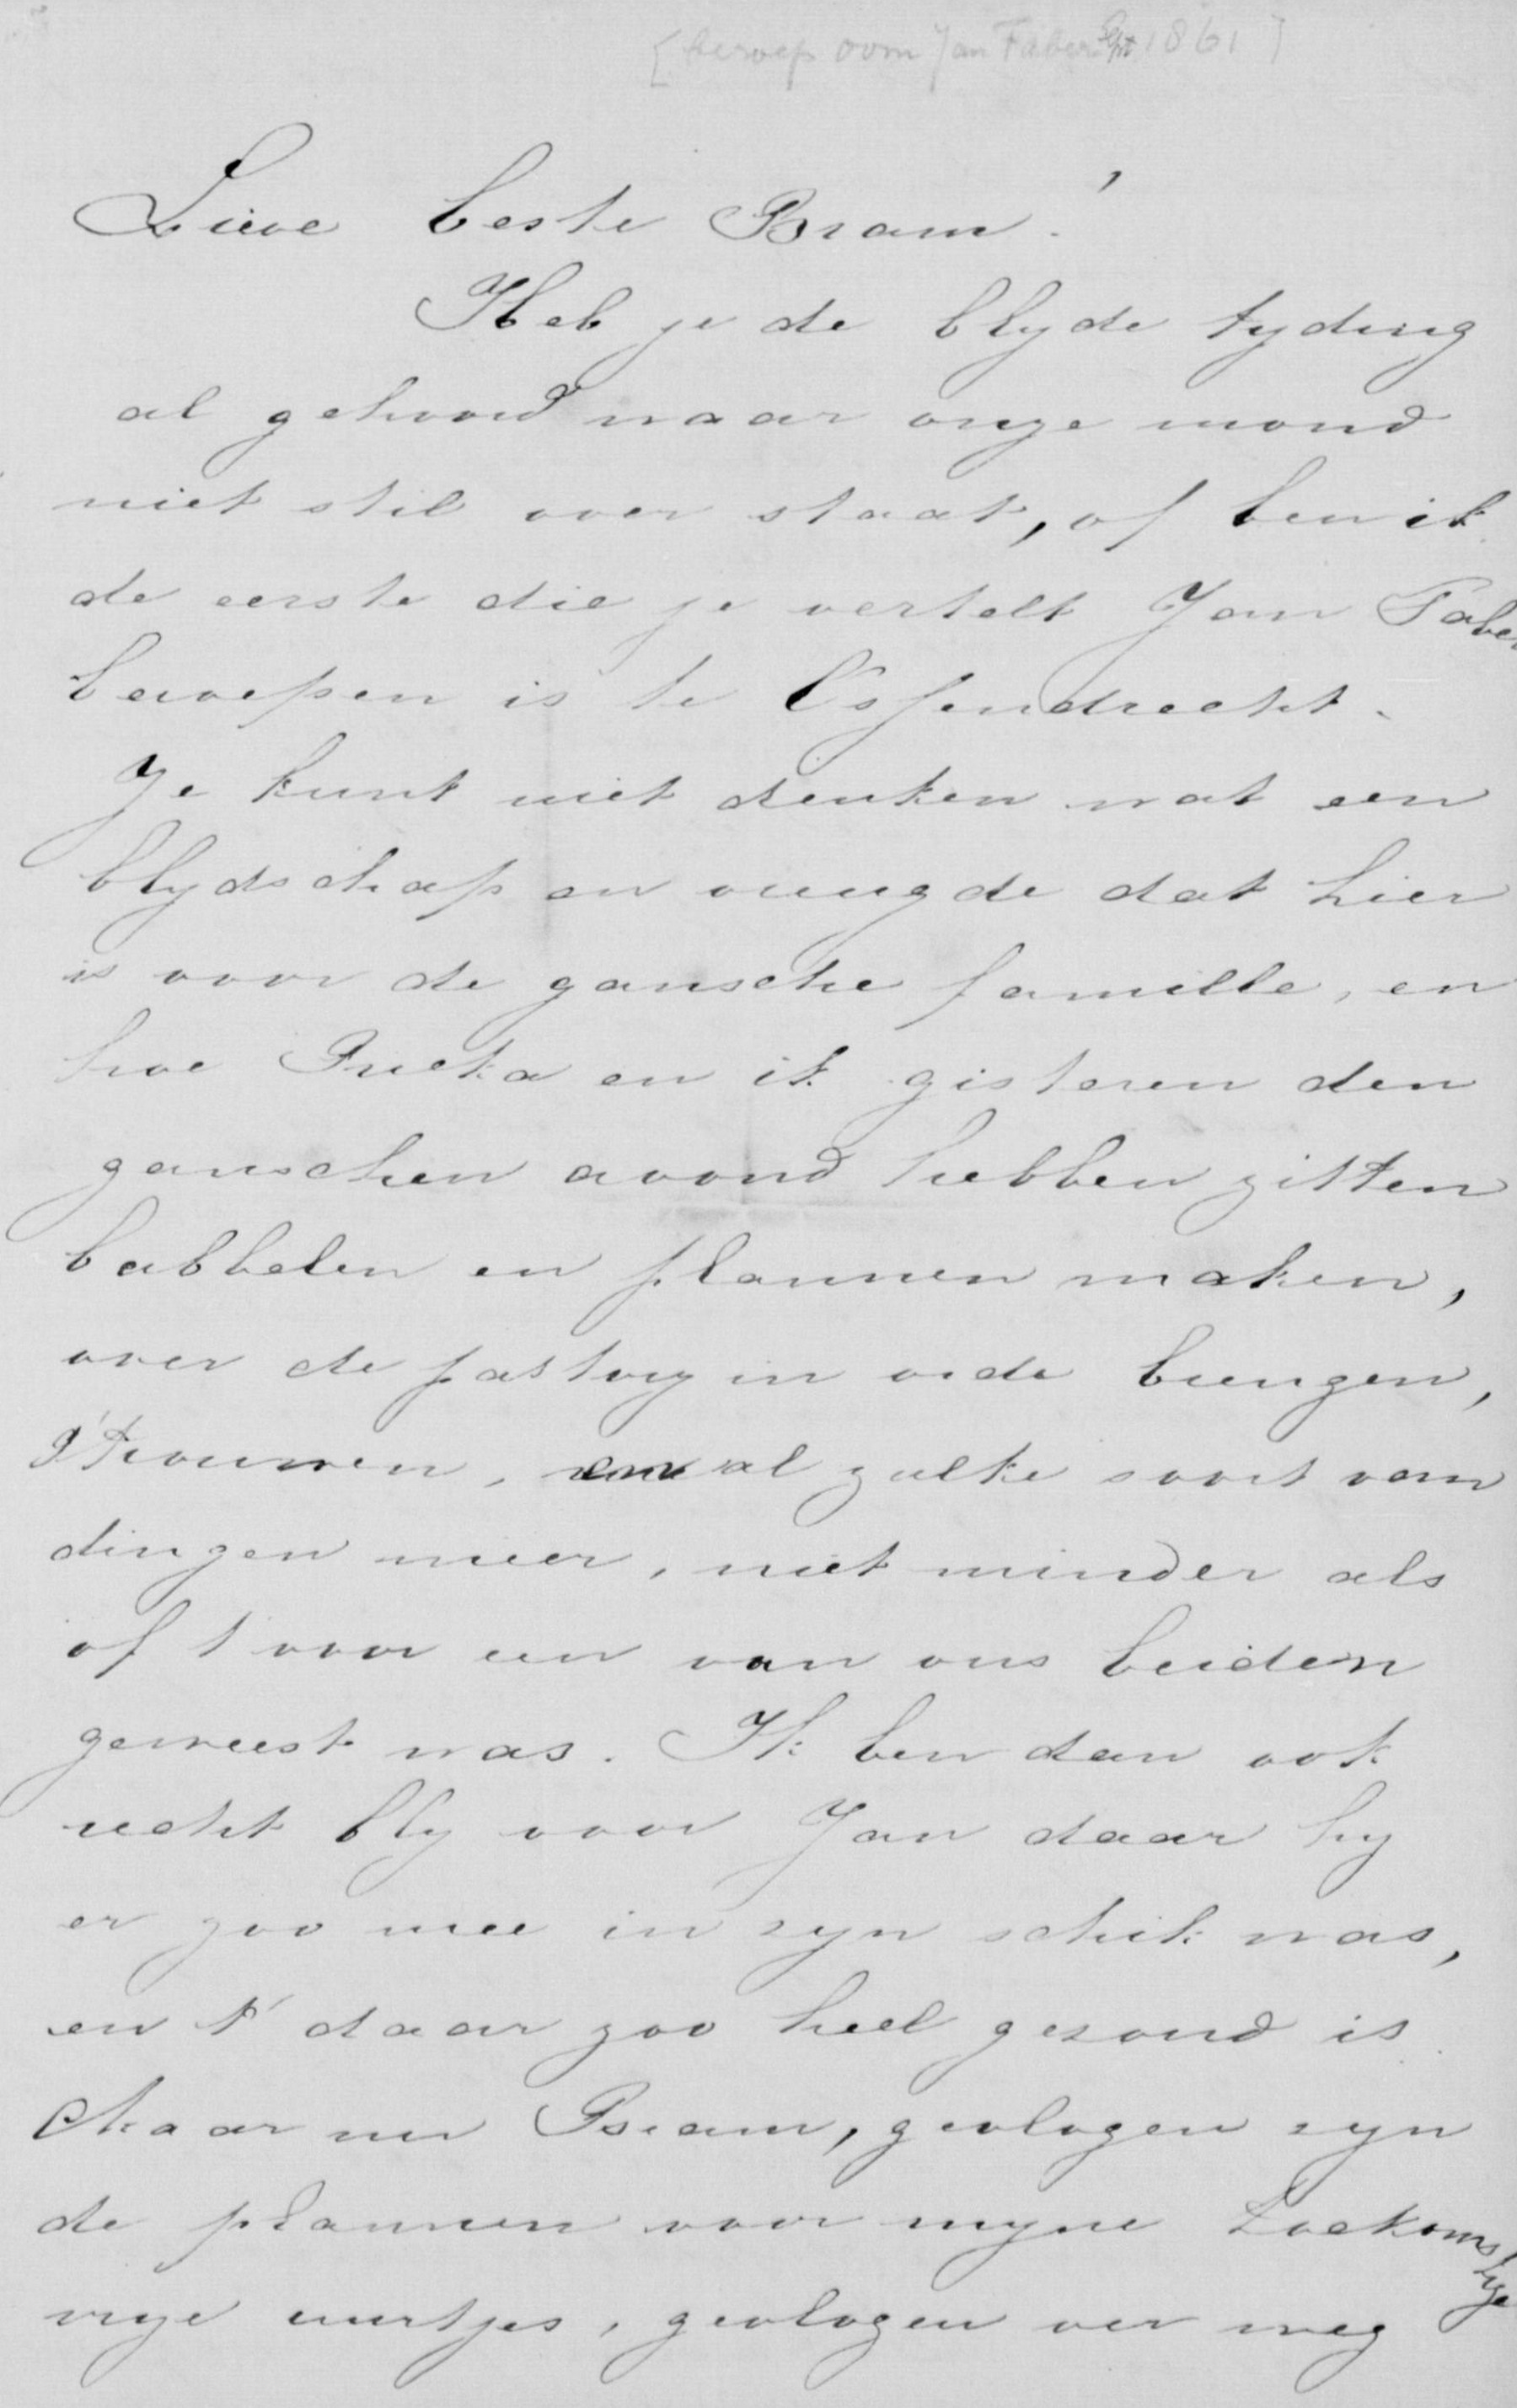 [beroep oom Jan Faber Spt 1861]
Lieve beste Bram!
Heb je de blyde tyding
al gehoord waar onze mond
niet stil over staat, of ben ik
de eerste die je vertelt Jan Faber
beroepen is te Ossendrecht.
Je kunt niet denken wat een
blydschap en vreugde dat hier
is voor de gansche familie, en
hoe en ik gisteren den
ganschen avond hebben zitten
babbelen en plannen maken,
over de pastory in orde brengen,
trouwen, en al zulke soort van
dingen meer, niet minder als
of t voor een van ons beiden
geweest was. Ik ben dan ook
recht bly voor Jan daar hy
er zoo mee in zyn schik was,
en t' daar zoo heel gezond is.
Maar nu Bram, gevlogen zyn
de plannen voor myne toekomstige
vrye uurtjes, gevlogen ver weg